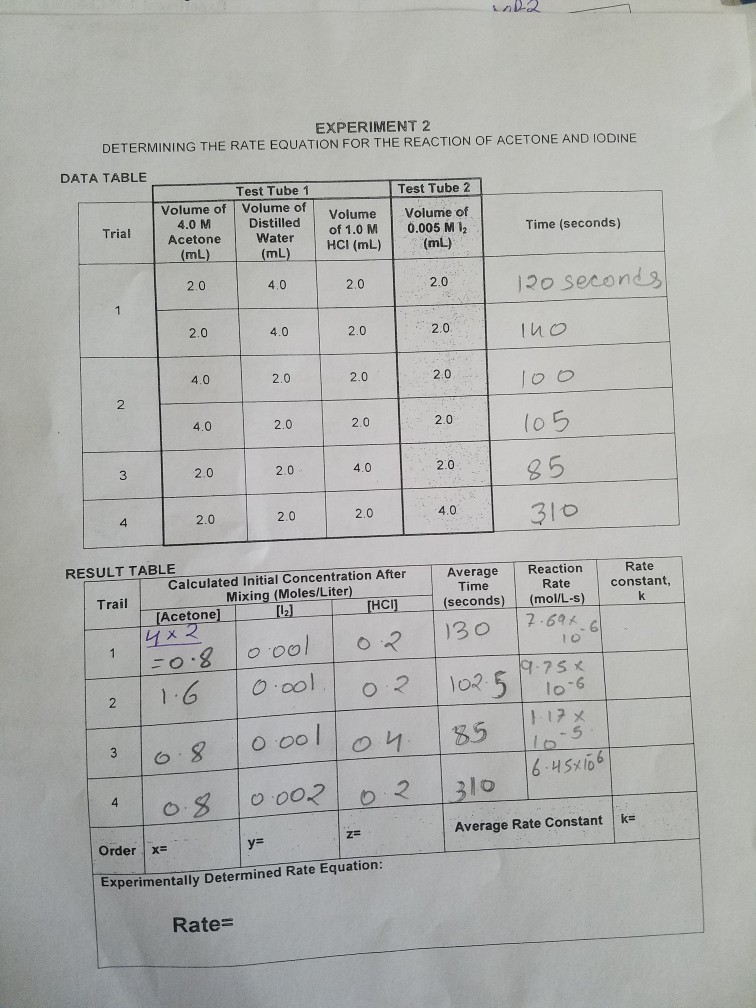 EXPERIMENT 2
DETERMINING THE RATE EQUATION FOR THE REACTION OF ACETONE AND IODINE
DATA TABLE
Test Tube 1 Test Tube 2
Trial Volume of 4.0 M Acetone (mL) Volume of Distilled Water (mL) Volume of 1.0 M HCl (mL) Volume of 0.005 M I₂ (mL) Time (seconds)
1 2.0 4.0 2.0 2.0 120 seconds
2.0 4.0 2.0 2.0 140
2 4.0 2.0 2.0 2.0 100
4.0 2.0 2.0 2.0 105
3 2.0 2.0 4.0 2.0 85
4 2.0 2.0 2.0 4.0 310
RESULT TABLE
Trail Calculated Initial Concentration After Mixing (Moles/Liter) Average Time (seconds) Reaction Rate (mol/L-s) Rate constant, k
[Acetone] [I₂] [HCl]
1 4 x 2 = 0.8 0.001 0.2 130 7.69 x 10-6
2 1.6 0.001 0.2 102.5 9.75 x 10-6
3 0.8 0.001 0.4 85 1.17 x 10-5
4 0.8 0.002 0.2 310 6.45x10-6
Order x= y= z= Average Rate Constant k=
Experimentally Determined Rate Equation:
Rate=